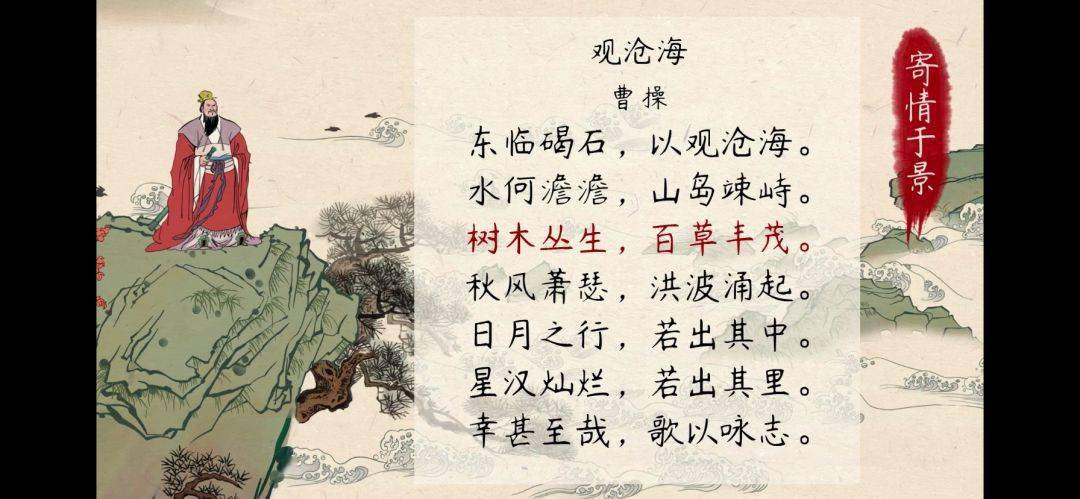 观沧海
曹操
东临碣石，以观沧海。
水何澹澹，山岛竦峙。
树木丛生，百草丰茂。
秋风萧瑟，洪波涌起。
日月之行，若出其中。
星汉灿烂，若出其里。
幸甚至哉，歌以咏志。
寄情于景